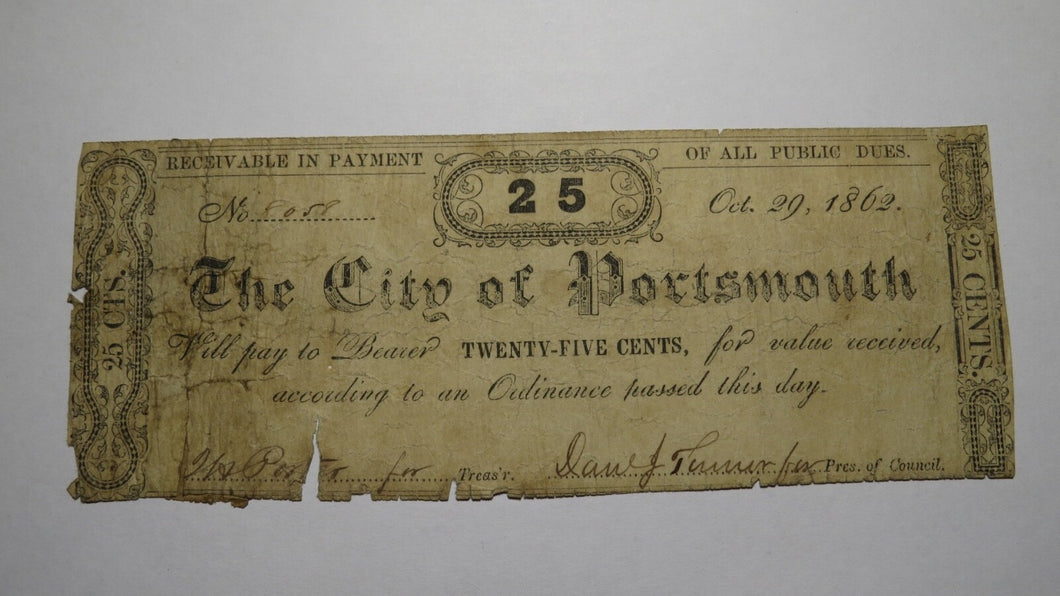 RECEIVABLE IN PAYMENT
25
OF ALL PUBLIC DUES.
No 8058
Oct. 29, 1862.
The City of Portsmouth
Will pay to Bearer TWENTY-FIVE CENTS, for value received,
according to an Ordinance passed this day.
Porter for Treas'r.
Dan'l J Turner for Pres. of Council.
25 CTS.
25 CENTS.